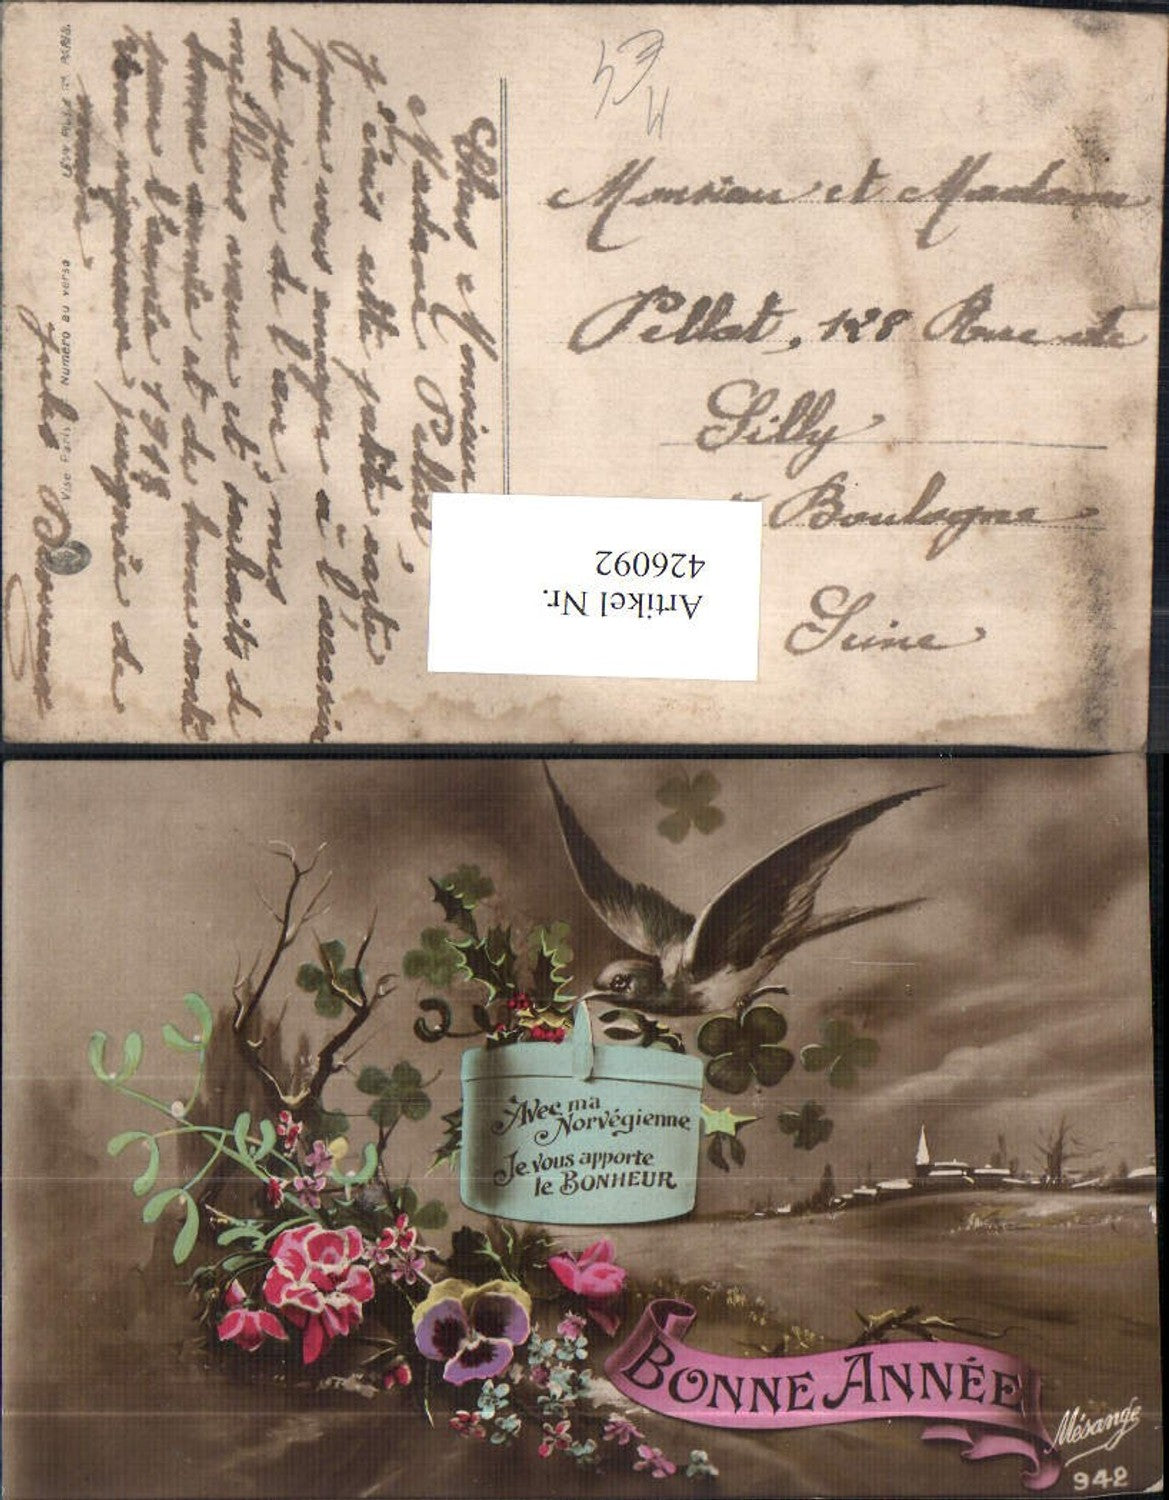 Monsieur et Madame
Pellat, 128 Rue de
Silly
à Boulogne
Seine
Cher Monsieur
Madame Pellat,
J'écris cette petite carte
pour vous envoyer à l'occasion
du jour de l'an, mes
meilleurs vœux et souhaits de
bonne année et de bonne santé
pour l'année 1918
Jules
Visé Paris Numéro au verso
PARIS.
Artikel Nr.
426092
Avec ma
Norvégienne
Je vous apporte
le BONHEUR
BONNE ANNÉE
Mésange
942